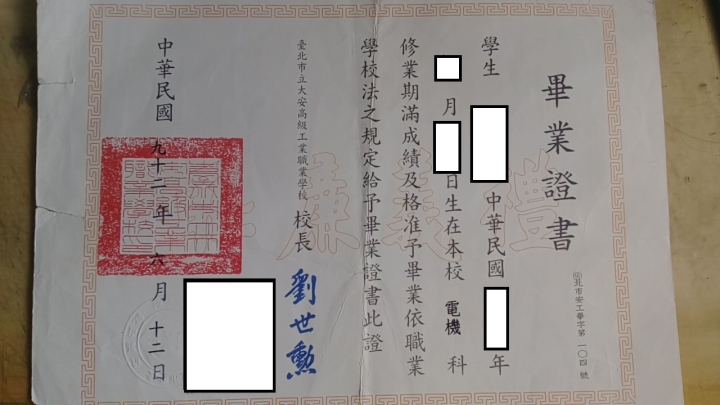 畢業證書
北市安工畢字第一〇四號
學生 中華民國 年
月 日生在本校電機科
修業期滿成績及格准予畢業依職業
學校法之規定給予畢業證書此證
臺北市立大安高級工業職業學校 校長 劉世勳
中華民國九十二年六月十二日
禮義廉